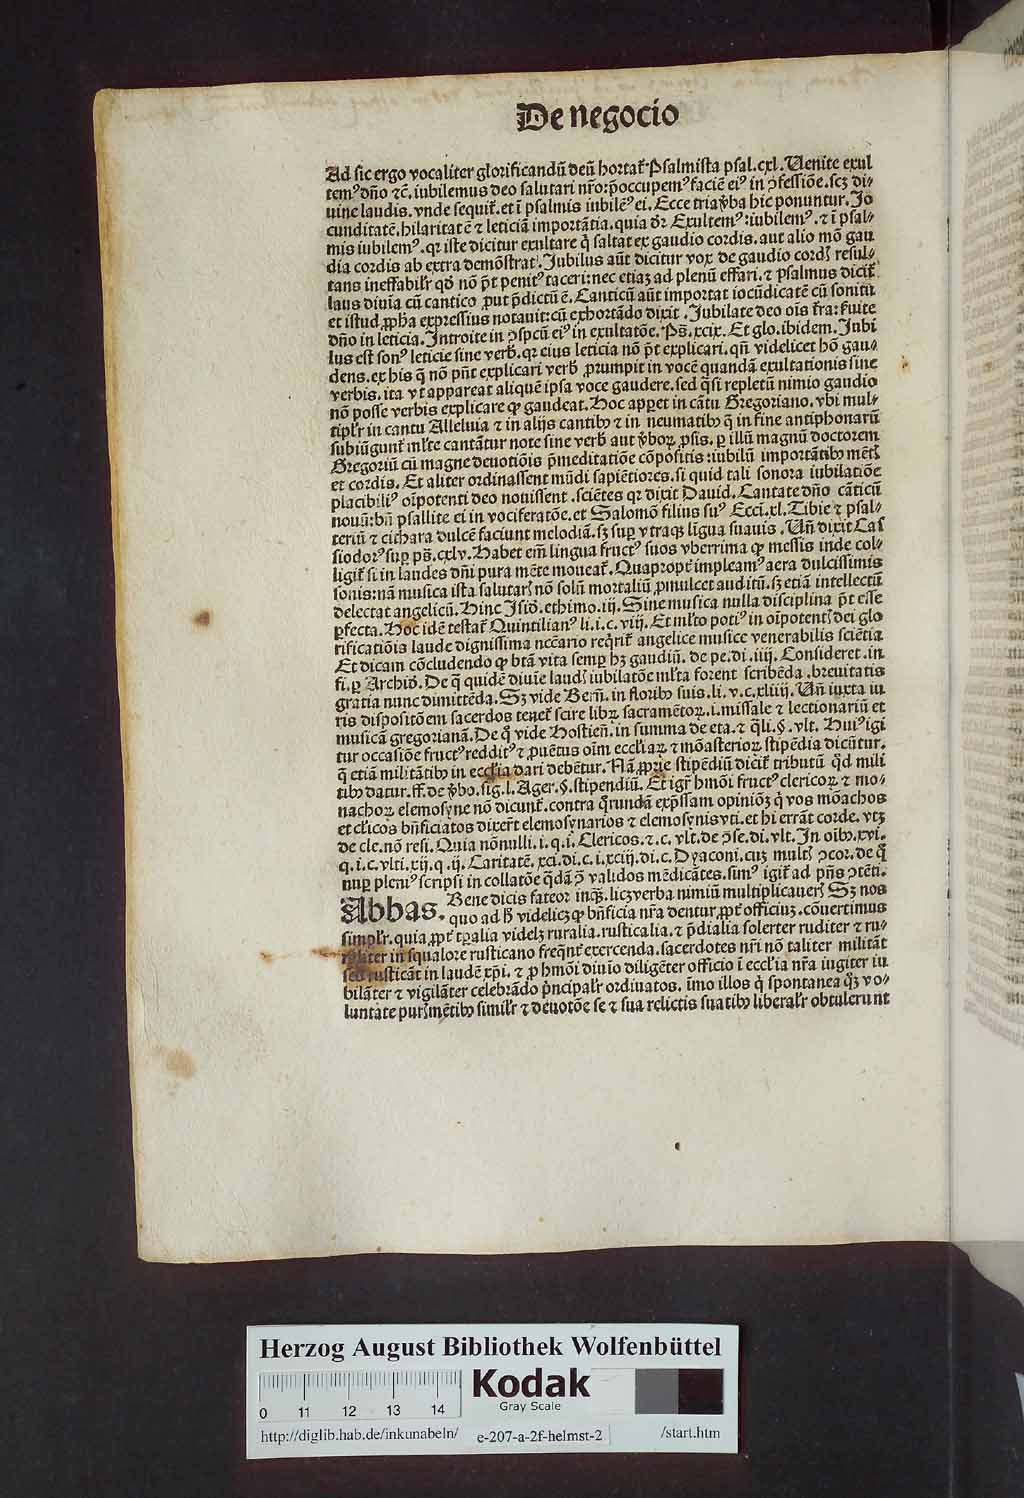 De negocio
Ad sic ergo vocaliter glorificandū deū hortat᷑ Psalmista psal.cxl. Uenite exul
temꝰ dño ⁊c̄. iubilemus deo salutari nr̄o: p̄occupemꝰ faciē eiꝰ in ꝯfessiōe. scꝫ di⸗
uine laudis. vnde sequit᷑. et ī psalmis iubilēꝰ ei. Ecce tria v̄ba hic ponuntur. Jo
cunditatē, hilaritatē ⁊ leticiā importātia. quia dr̄ Exultemꝰ: iubilemꝰ. ⁊ ī psal⸗
mis iubilemꝰ. qr iste dicitur exultare q̄ saltat ex gaudio cordis. aut alio mō gau
dia cordis ab extra demōstrat. Jubilus aūt dicitur vox de gaudio cordꝭ resul⸗
tans ineffabilr̄ qd̄ nō p̄t penitꝰ taceri: nec etiaꝫ ad plenū effari. ⁊ psalmus dicit᷑
laus diuia cū cantico ꝓut p̄dictū ē. Canticū aūt importat iocūdicatē cū sonitu
et istud ꝓpha expressius notauit: cū exhortādo dixit. Jubilate deo ois t̄ra: ẜuite
dño in leticia. Jntroite in ꝯspcū eiꝰ in exultatōe. Ps̄. xcix. Et glo. ibidem. Jubi
lus est sonꝰ leticie sine verb̄. qr eius leticia nō p̄t explicari. qn̄ videlicet hō gau⸗
dens. ex his q̄ nō pn̄t explicari verb̄ ꝓrumpit in vocē quandā exultationis sine
verbis. ita vt appareat aliquē ipsa voce gaudere. sed q̄si repletū nimio gaudio
nō posse verbis explicare qꝫ gaudeat. Hoc apꝑet in cātu Gregoriano. vbi mul⸗
tiplr̄ in cantu Alleluia ⁊ in alijs cantibꝫ ⁊ in neumatibꝫ q̄ in fine antiphonarū
subiūgunt᷑ ml̄te cantātur note sine verb̄ aut v̄boꝝ ꝓsis. ꝑ illū magnū doctorem
Gregoriū cū magne deuotiōis p̄meditatiōe cōpositis: iubilū importātibꝫ mētꝭ
et cordis. Et aliter ordinassent mūdi sapiētiores. si quid tali sonora iubilatiōe
placibiliꝰ oīpotenti deo nouissent. sciētes qr dixit Dauid. Cantate dño cāticū
nouū: bn̄ psallite ei in vociferatōe. et Salomō filius suꝰ Ecci. xl. Tibie ⁊ psal⸗
teriū ⁊ cithara dulcē faciunt melodiā. sꝫ suꝑ vtraqꝫ līgua suauis. Un̄ dixit Cas
siodorꝰ suꝑ ps̄. cxlv. Habet em̄ lingua fructꝰ suos vberrima qꝫ messis inde col⸗
ligit᷑ si in laudes dn̄i pura mēte moueat᷑. Quapropt᷑ impleamꝰ aera dulcissimis
sonis: nā musica ista salutarꝭ nō solū mortaliū ꝓmulcet auditū. sꝫ etiā intellectū
delectat angelicū. Hinc Jsid̄. ethimo. iij. Sine musica nulla disciplina p̄t esse
ꝑfecta. Hoc idē testat᷑ Quintilianꝰ li. i. c. viij. Et ml̄to potiꝰ in oīpotentꝭ dei glo
rificatiōis laude dignissima ncc̄ario req̄rit᷑ angelice musice venerabilis sciētia
Et dicam cōcludendo qꝫ btā vita semꝑ hꝫ gaudiū. de pe. di. iiij. Consideret. in
fi. ꝑ Archid̄. De q̄ quidē diuie laudꝭ iubilatōe ml̄ta forent scribēda. breuitatis
gratia nunc dimittēda. Sꝫ vide Bern̄. in floribꝫ suis. li. v. c. xliij. Un̄ iuxta iu
ris dispositōem sacerdos tenet᷑ scire libꝝ sacramētoꝝ. i. missale ⁊ lectionariū et
musicā gregorianā. De q̄ vide Hostien̄. in summa de eta. ⁊ q̄li. §. vlt. Huiꝰ igi
tur occasiōe fructꝰ redditꝰ ⁊ ꝓuētus oīm eccl̄iaꝝ ⁊ mōasterioꝝ stipēdia dicūtur.
q̄ etiā militātibꝫ in eccl̄ia dari debētur. Nā ꝓprie stipēdiū dicit᷑ tributū qd̄ mili
tibꝫ datur. ff. de v̄bo. sig. l. Ager. §. stipendiū. Et igr̄ hmōi fructꝰ clericoꝝ ⁊ mo⸗
nachoꝝ elemosyne nō dicunt᷑. contra q̄rundā exp̄ssam opiniōꝫ q̄ vos mōachos
et cl̄icos bn̄ficiatos dixer̄t elemosynarios ⁊ elemosynis vti. et hi errāt corde. vtꝫ
de cle. nō resi. Quia nōnulli. i. q. i. Clericos. ⁊. c. vlt. de ꝯse. di. vlt. Jn oībꝫ. xvi.
q. i. c. vlti. xij. q. ij. Caritatē. xci. di. c. i. xciij. di. c. Dyaconi. cuꝫ multꝭ ꝯcor. de q̄
nuꝑ pleniꝰ scripsi in collatōe q̄dā ꝯ validos mēdicātes. simꝰ igit᷑ ad pn̄s ꝯtēti.
Abbas. Bene dicis fateor inqꝫ. licꝫ verba nimiū multiplicauerꝭ Sꝫ nos
quo ad h̄ videlicꝫ qꝫ bn̄ficia nr̄a dentur ꝓpt᷑ officiuꝫ. cōuertimus
simplr̄. quia ꝓpt᷑ tꝑalia videlꝫ ruralia. rusticalia. ⁊ p̄dialia solerter ruditer ⁊ ru⸗
raliter in squalore rusticano freq̄nt᷑ exercenda. sacerdotes nr̄i nō taliter militāt
sed rusticāt in laudē xp̄i. ⁊ ꝓ hmōi diuīo diligēter officio ī eccl̄ia nr̄a iugiter iu
bilāter ⁊ vigilāter celebrādo p̄ncipalr̄ ordinatos. imo illos q̄ spontanea q̄ꝫ vo⸗
luntate purꝭ mētibꝫ similr̄ ⁊ deuotōe se ⁊ sua relictis suatibꝫ liberalr̄ obtulerunt
Herzog August Bibliothek Wolfenbüttel
Kodak
Gray Scale
0 11 12 13 14
http://diglib.hab.de/inkunabeln/ e-207-a-2f-helmst-2 /start.htm